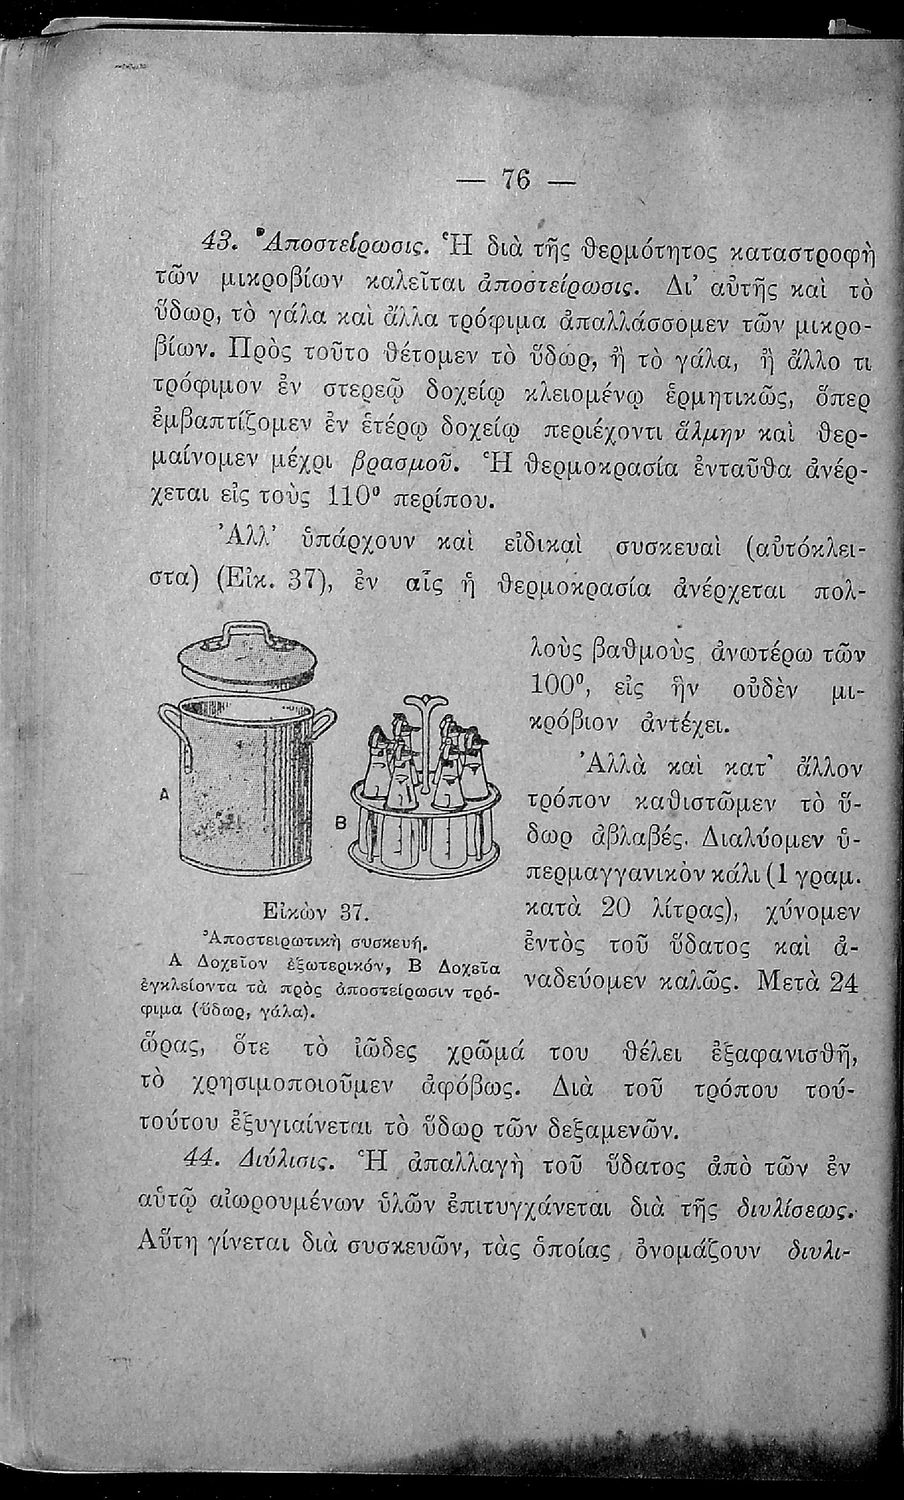 — 76 —
43. Ἀποστείρωσις. Ἡ διὰ τῆς θερμότητος καταστροφὴ
τῶν μικροβίων καλεῖται ἀποστείρωσις. Δι’ αὐτῆς καὶ τὸ
ὕδωρ, τὸ γάλα καὶ ἄλλα τρόφιμα ἀπαλλάσσομεν τῶν μικρο-
βίων. Πρὸς τοῦτο θέτομεν τὸ ὕδωρ, ἢ τὸ γάλα, ἢ ἄλλο τι
τρόφιμον ἐν στερεῷ δοχείῳ κλειομένῳ ἑρμητικῶς, ὅπερ
ἐμβαπτίζομεν ἐν ἑτέρῳ δοχείῳ περιέχοντι ἅλμην καὶ θερ-
μαίνομεν μέχρι βρασμοῦ. Ἡ θερμοκρασία ἐνταῦθα ἀνέρ-
χεται εἰς τοὺς 110° περίπου.
Ἀλλ’ ὑπάρχουν καὶ εἰδικαὶ συσκευαὶ (αὐτόκλει-
στα) (Εἰκ. 37), ἐν αἷς ἡ θερμοκρασία ἀνέρχεται πολ-
λοὺς βαθμοὺς ἀνωτέρω τῶν
100°, εἰς ἣν οὐδὲν μι-
κρόβιον ἀντέχει.
Ἀλλὰ καὶ κατ’ ἄλλον
τρόπον καθιστῶμεν τὸ ὕ-
δωρ ἀβλαβές. Διαλύομεν ὑ-
περμαγγανικὸν κάλι (1 γραμ.
κατὰ 20 λίτρας), χύνομεν
ἐντὸς τοῦ ὕδατος καὶ ἀ-
ναδεύομεν καλῶς. Μετὰ 24
A
B
Εἰκὼν 37.
Ἀποστειρωτικὴ συσκευή.
Α Δοχεῖον ἐξωτερικόν, Β Δοχεῖα
ἐγκλείοντα τὰ πρὸς ἀποστείρωσιν τρό-
φιμα (ὕδωρ, γάλα).
ὥρας, ὅτε τὸ ἰῶδες χρῶμά του θέλει ἐξαφανισθῆ,
τὸ χρησιμοποιοῦμεν ἀφόβως. Διὰ τοῦ τρόπου τού-
τούτου ἐξυγιαίνεται τὸ ὕδωρ τῶν δεξαμενῶν.
44. Διύλισις. Ἡ ἀπαλλαγὴ τοῦ ὕδατος ἀπὸ τῶν ἐν
αὐτῷ αἰωρουμένων ὑλῶν ἐπιτυγχάνεται διὰ τῆς διυλίσεως.
Αὕτη γίνεται διὰ συσκευῶν, τὰς ὁποίας ὀνομάζουν διυλι-